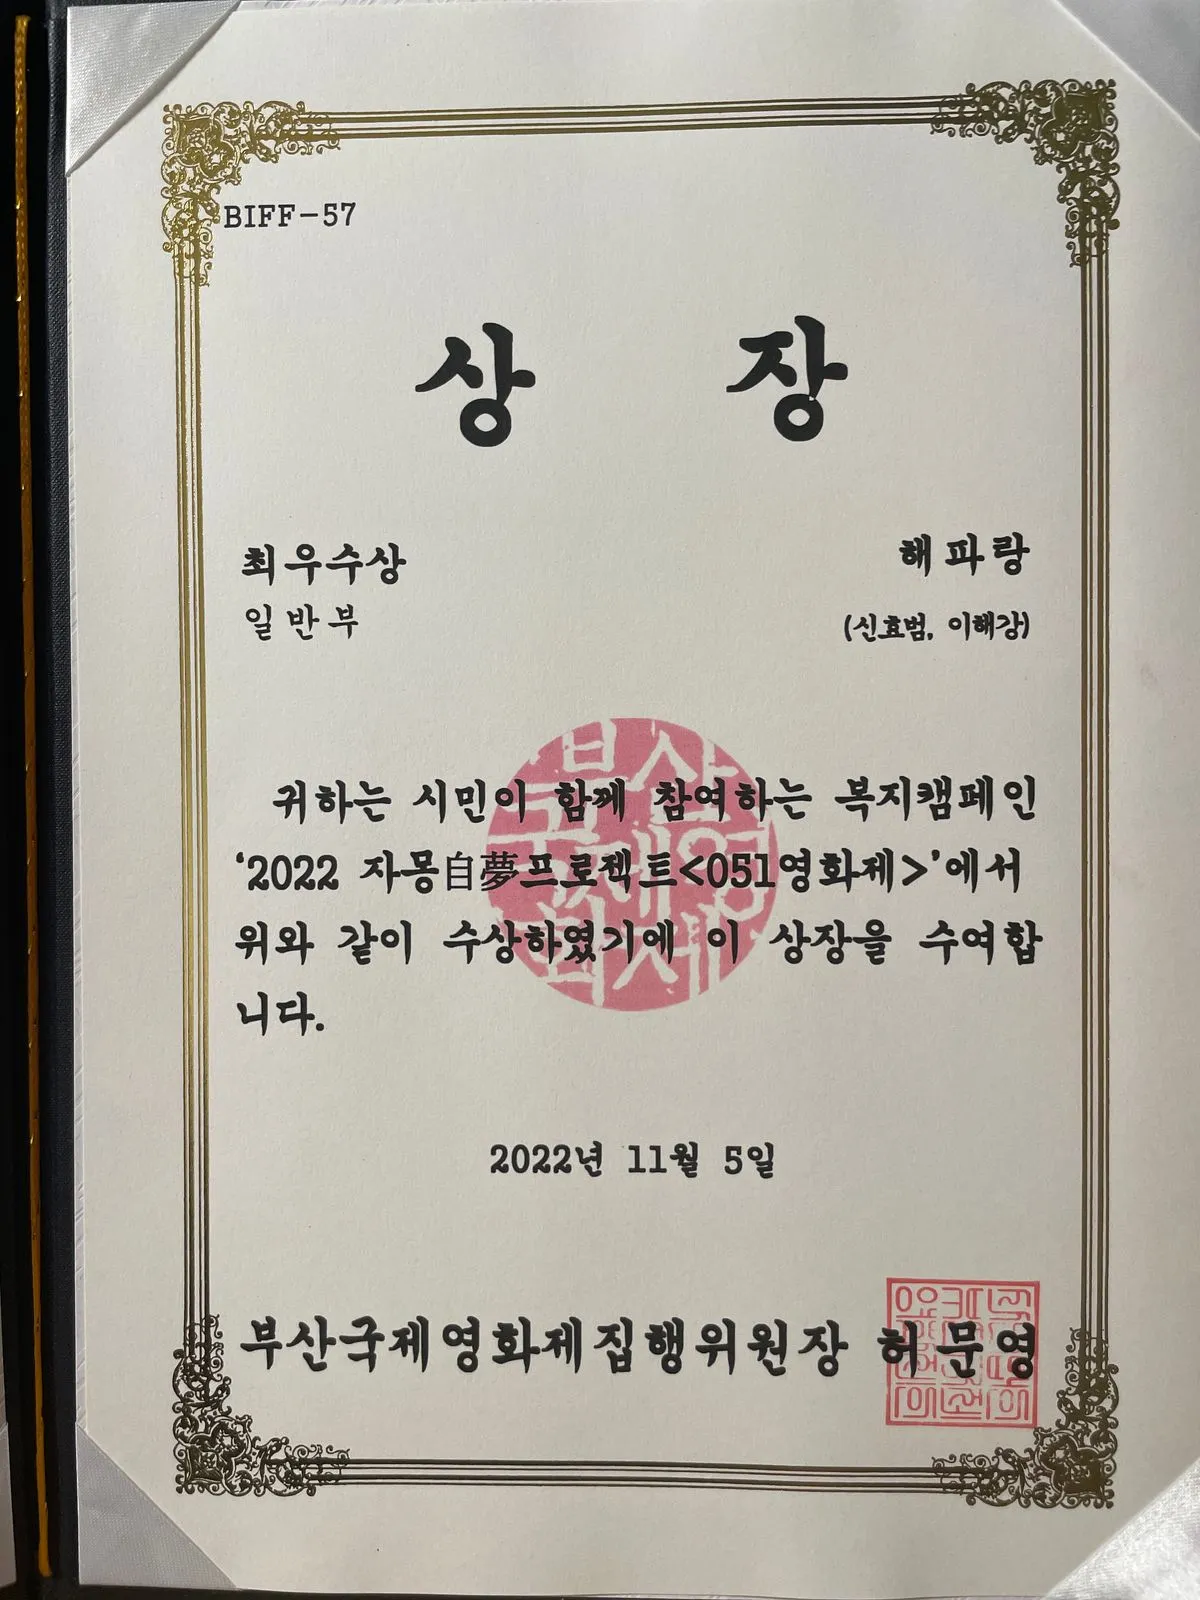 BIFF-57
상 장
최우수상
해파랑
일반부
(신효범, 이해강)
귀하는 시민이 함께 참여하는 복지캠페인
‘2022 자몽自夢프로젝트<051영화제>’에서
위와 같이 수상하였기에 이 상장을 수여합
니다.
2022년 11월 5일
부산국제영화제집행위원장 허문영
부산
국제영
화제